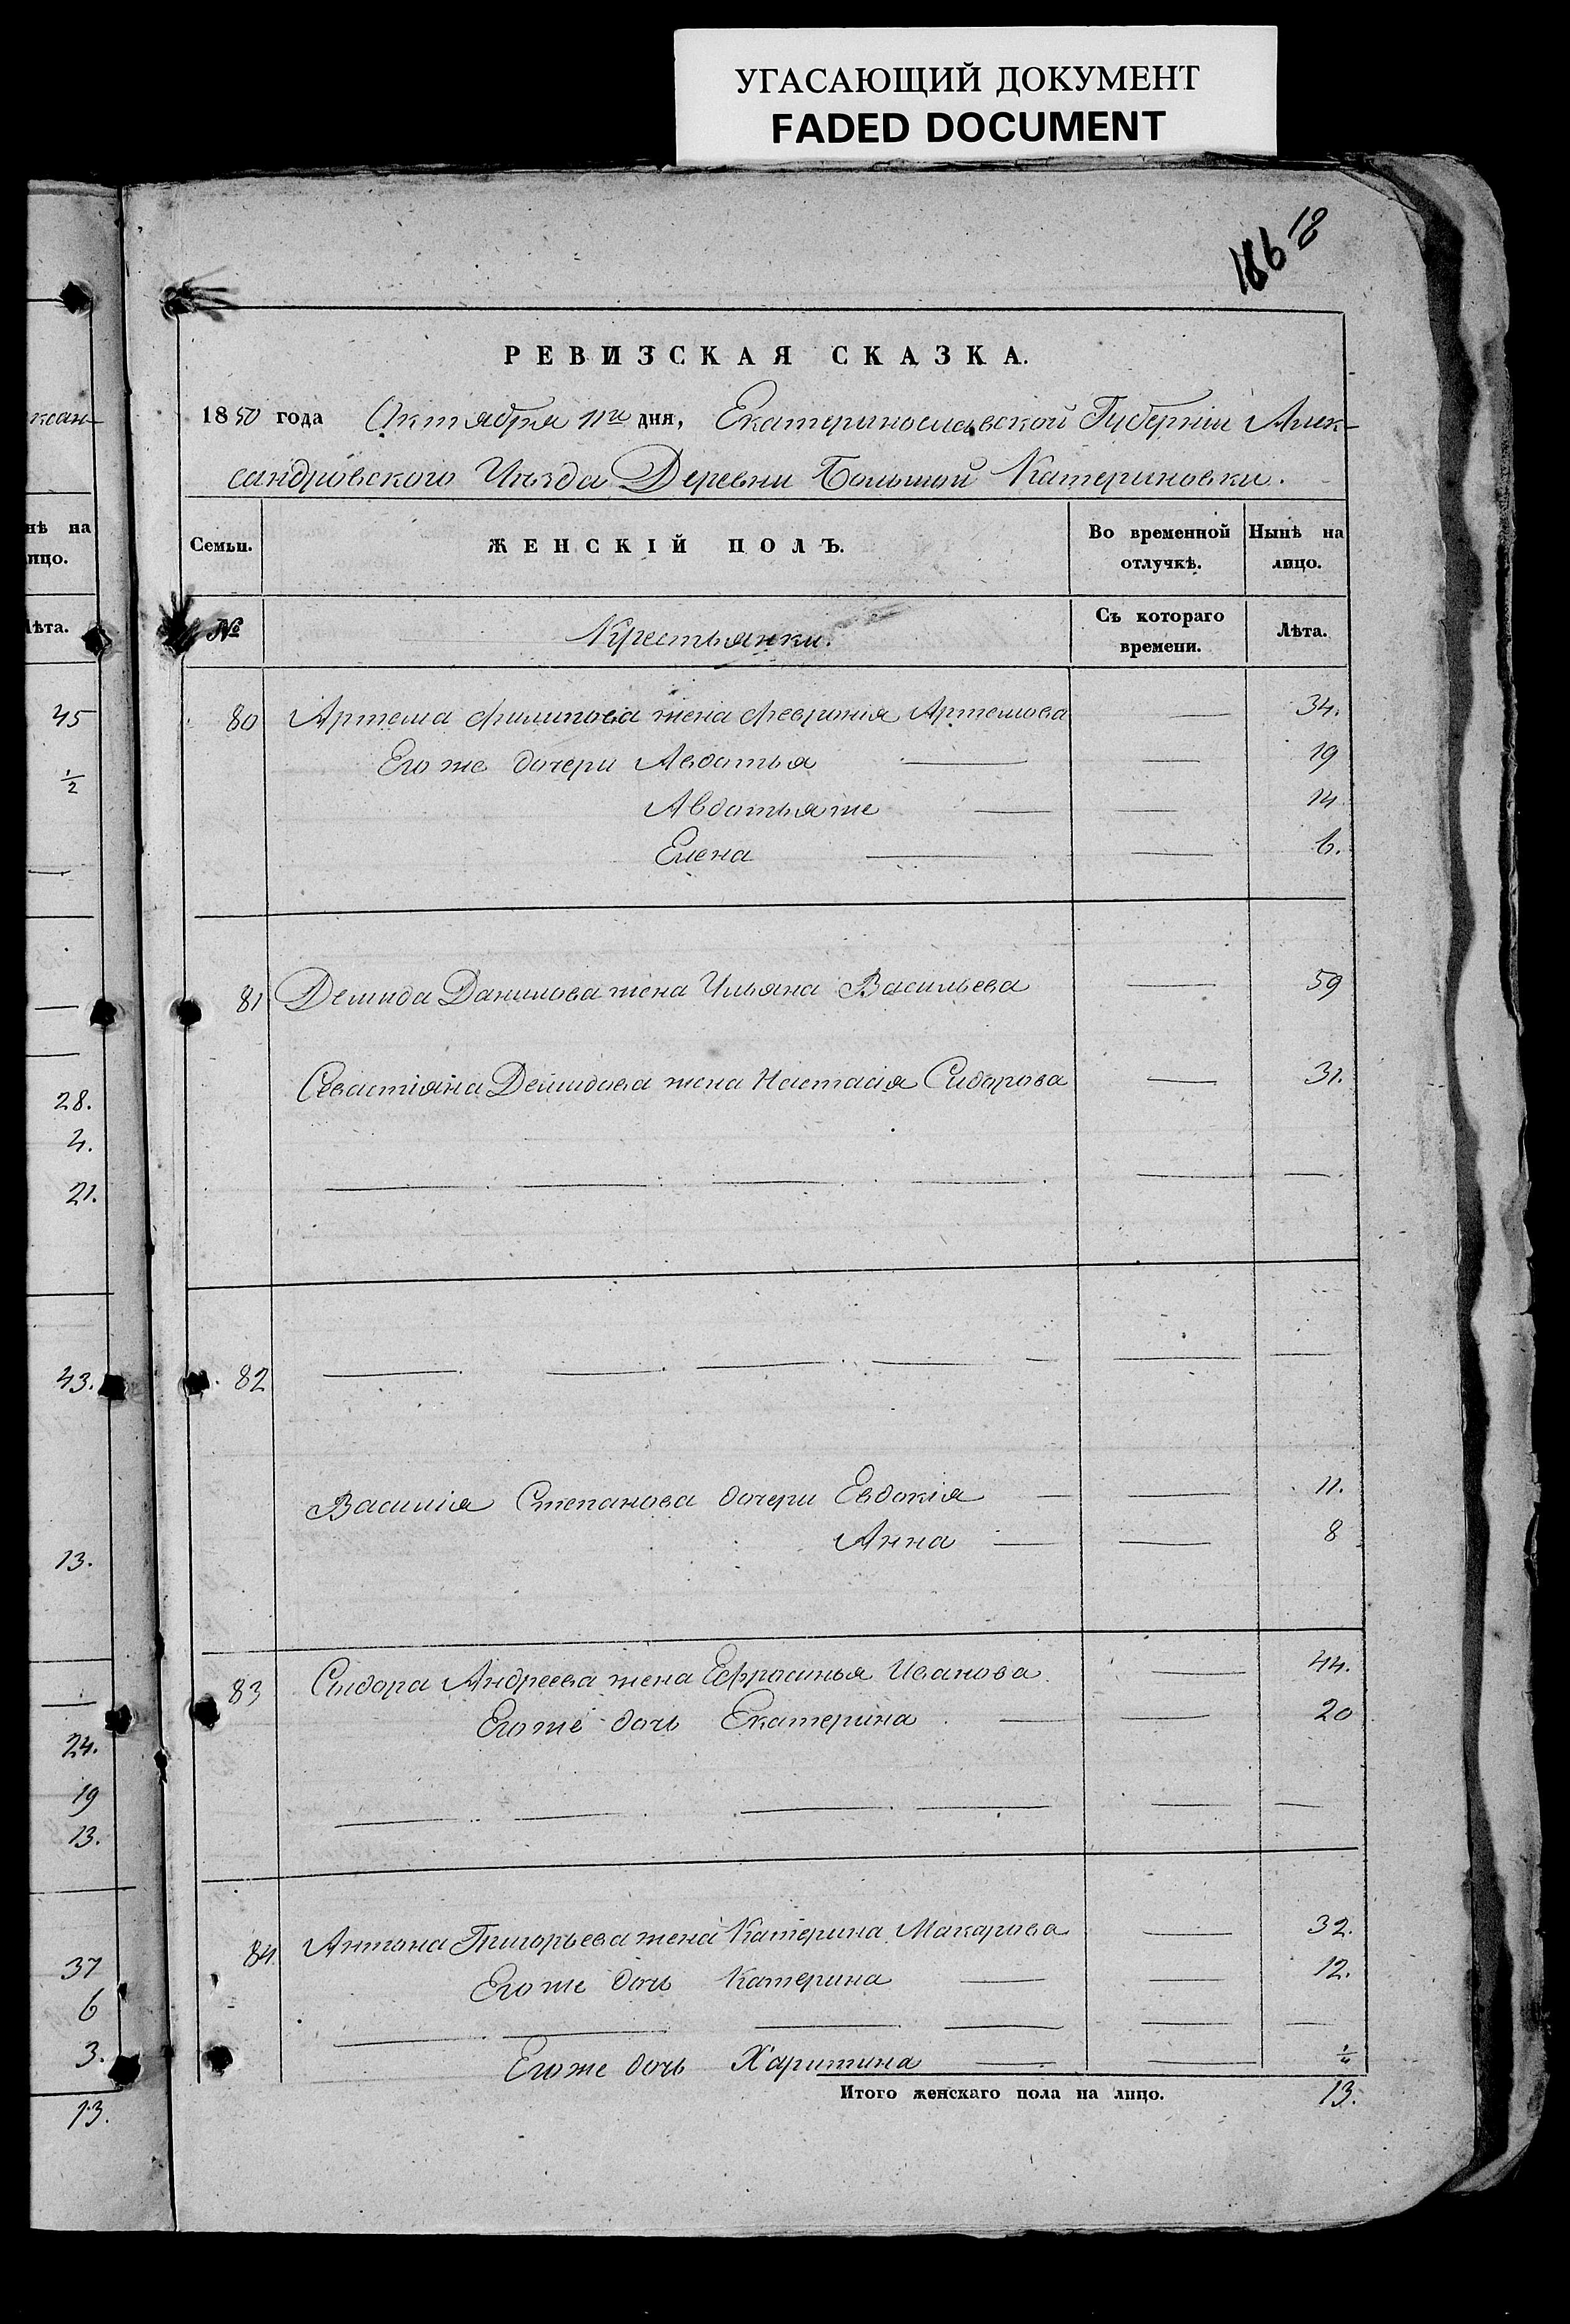 УГАСАЮЩИЙ ДОКУМЕНТ
FADED DOCUMENT
186 18
РЕВИЗСКАЯ СКАЗКА.
1850 года Октября 11го дня, Екатеринославской Губерніи Алек-
сандровского Уѣзда Деревни Большой Катериновки.
Семьи. ЖЕНСКІЙ ПОЛЪ. Во временной отлучкѣ. Нынѣ на лицо.
№ Крестьянки. Съ котораго времени. Лѣта.
80 Артема Филипова жена Февронія Артемова — 34.
Его же дочери Авдотья — — 19
Авдотья же — — 14.
Елена — — 6.
81 Демида Данилова жена Ульяна Васильева — 59
Севастіяна Демидова жена Настасія Сидорова — 31.
— — — — — —
82 — — — — — — —
Василія Степанова дочери Евдокія — — 11.
Анна — — 8
83 Сидора Андреева жена Ефросинья Иванова — 44.
Его же дочь Екатерина — — 20
— — — — — —
84. Антона Григорьева жена Катерина Макарова — 32.
Его же дочь Катерина — — 12.
— — — — — —
Его же дочь Харитина — — 1/4
Итого женскаго пола на лицо. 13.
ксан-
нѣ на
ицо.
ѣта.
45
1/2
—
—
28.
4.
21.
43.
13.
—
24.
19
13.
37
6
3.
13.